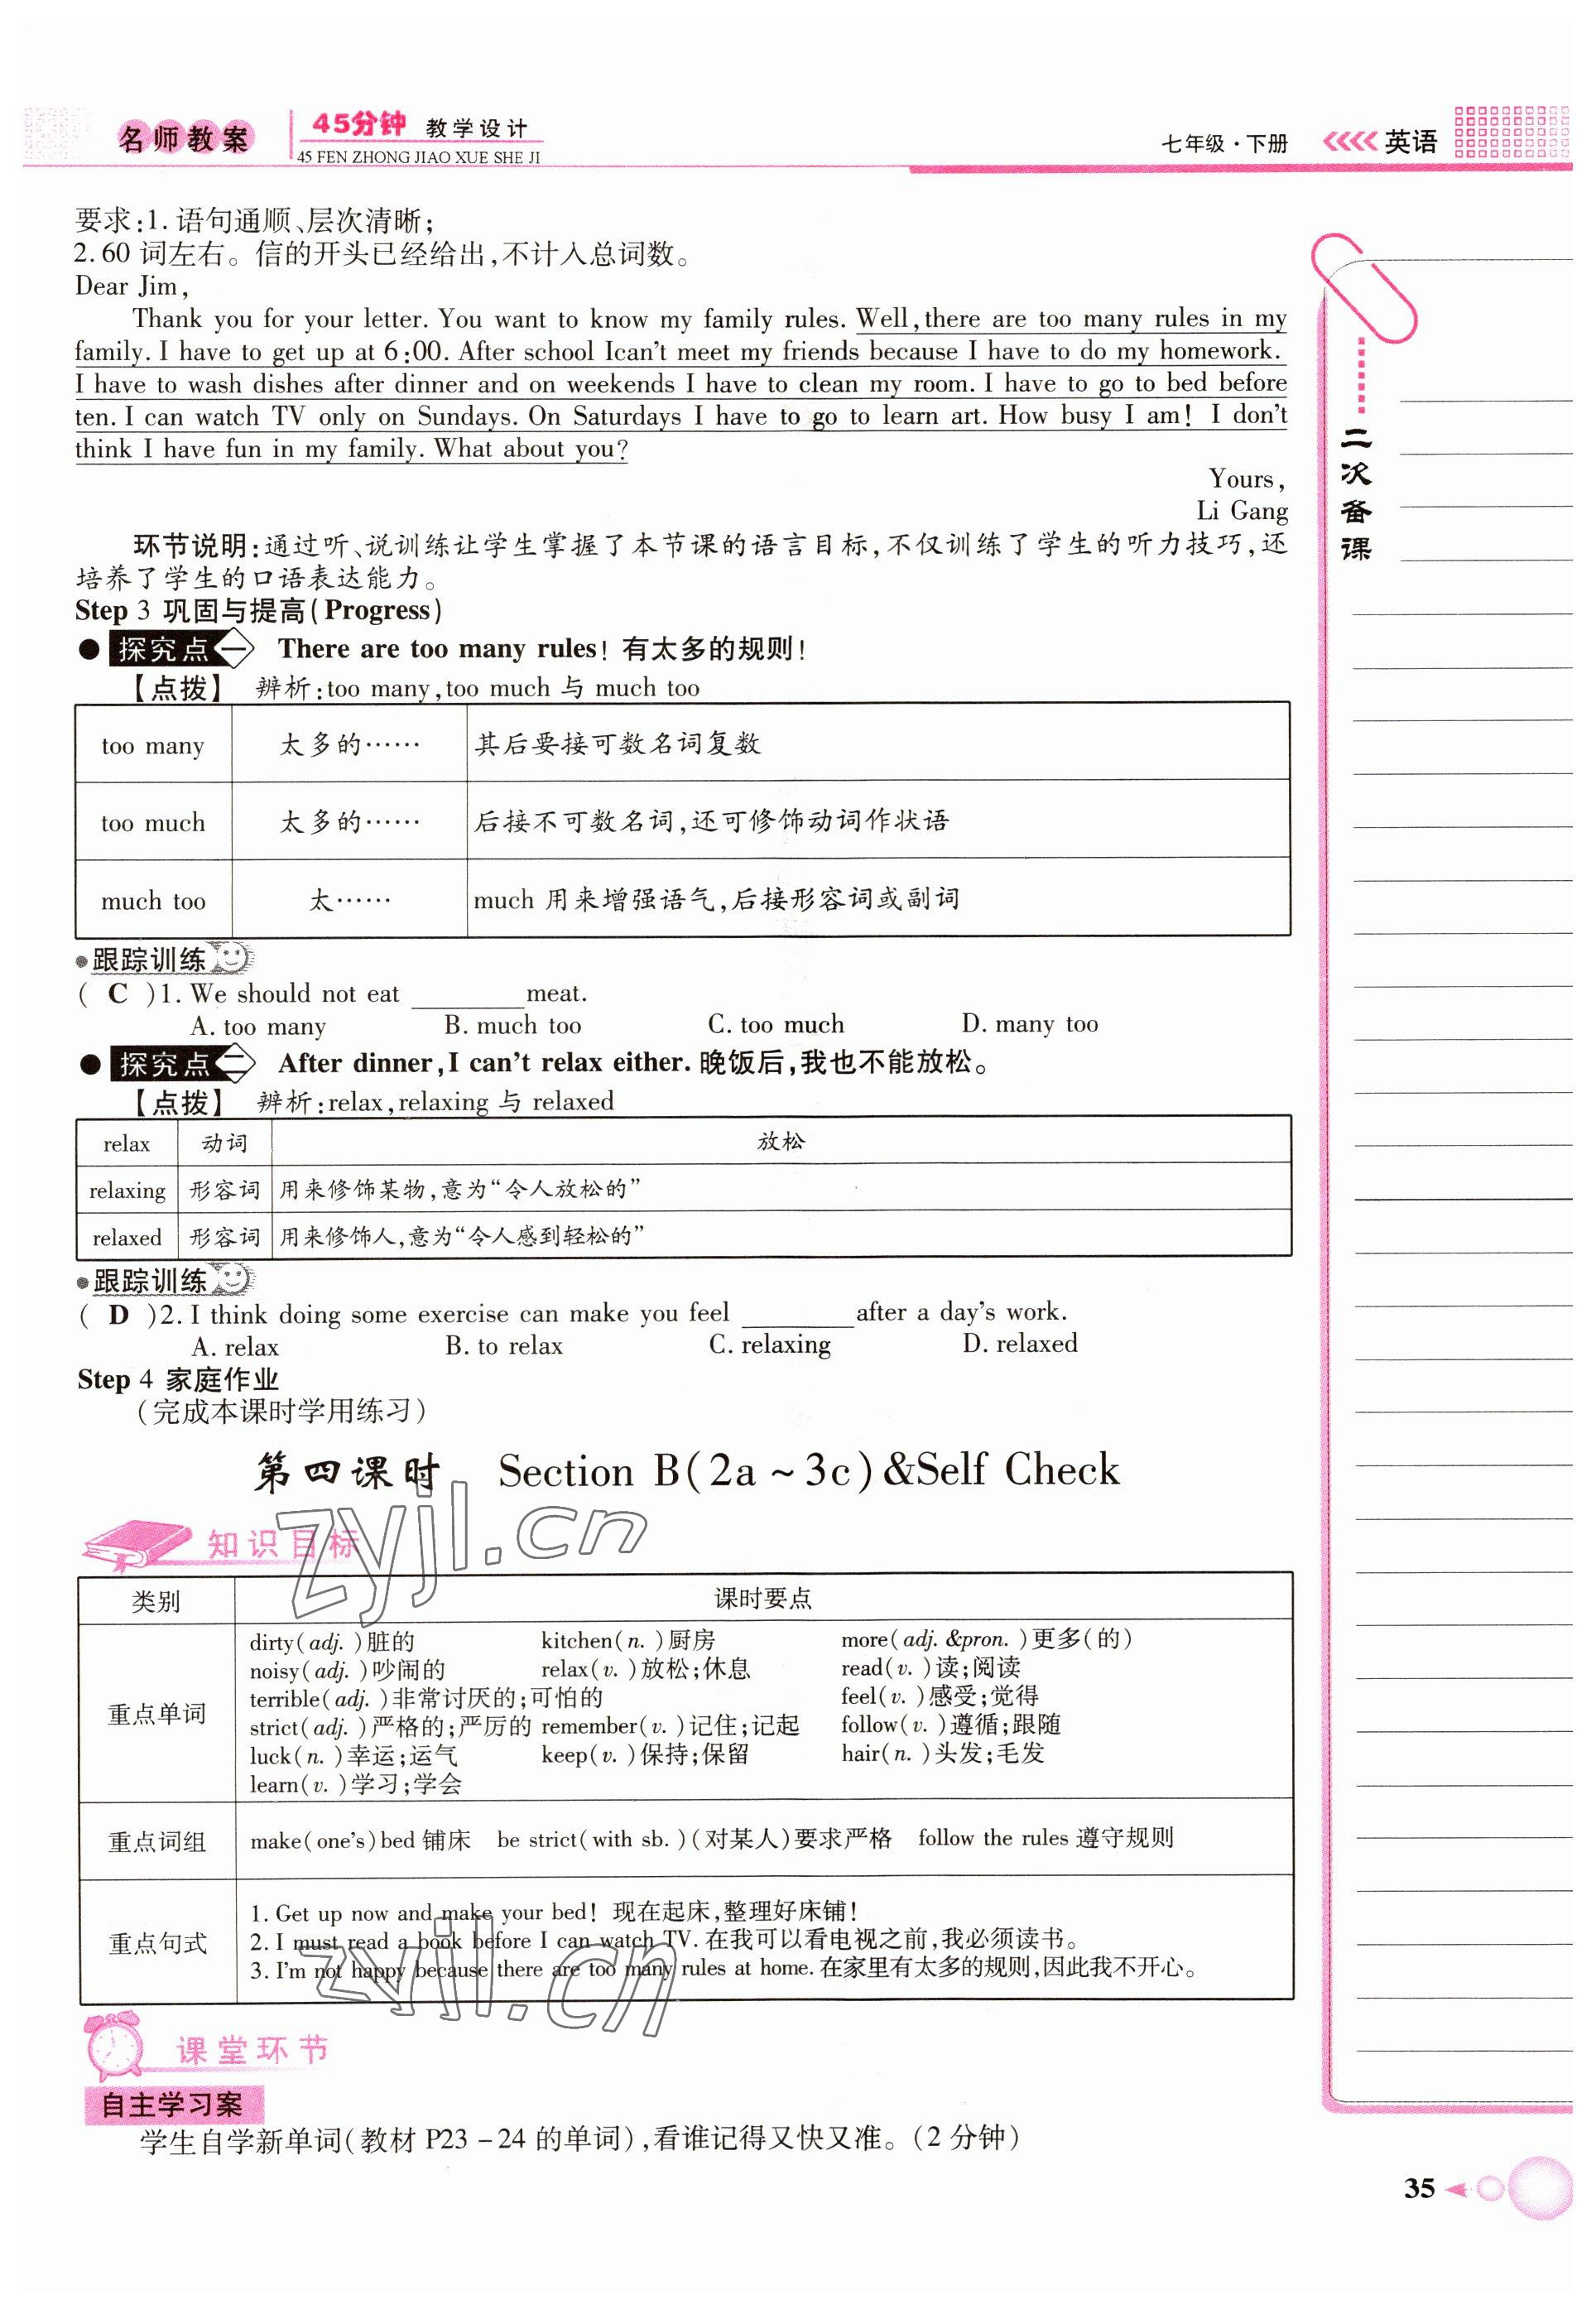 名师教案 45分钟 教学设计
45 FEN ZHONG JIAO XUE SHE JI
七年级·下册 英语
要求:1.语句通顺、层次清晰;
2.60 词左右。信的开头已经给出,不计入总词数。
Dear Jim,
Thank you for your letter. You want to know my family rules. Well,there are too many rules in my
family. I have to get up at 6:00. After school Ican't meet my friends because I have to do my homework.
I have to wash dishes after dinner and on weekends I have to clean my room. I have to go to bed before
ten. I can watch TV only on Sundays. On Saturdays I have to go to learn art. How busy I am! I don't
think I have fun in my family. What about you?
Yours,
Li Gang
环节说明:通过听、说训练让学生掌握了本节课的语言目标,不仅训练了学生的听力技巧,还
培养了学生的口语表达能力。
Step 3 巩固与提高(Progress)
●探究点一 There are too many rules! 有太多的规则!
【点拨】 辨析:too many,too much 与 much too
too many 太多的…… 其后要接可数名词复数
too much 太多的…… 后接不可数名词,还可修饰动词作状语
much too 太…… much 用来增强语气,后接形容词或副词
●跟踪训练
( C )1. We should not eat ________ meat.
A. too many B. much too C. too much D. many too
●探究点二 After dinner,I can't relax either. 晚饭后,我也不能放松。
【点拨】 辨析:relax,relaxing 与 relaxed
relax 动词 放松
relaxing 形容词 用来修饰某物,意为“令人放松的”
relaxed 形容词 用来修饰人,意为“令人感到轻松的”
●跟踪训练
( D )2. I think doing some exercise can make you feel ________ after a day's work.
A. relax B. to relax C. relaxing D. relaxed
Step 4 家庭作业
(完成本课时学用练习)
第四课时 Section B(2a~3c)&Self Check
知识目标
类别 课时要点
重点单词
dirty(adj.)脏的 kitchen(n.)厨房 more(adj. &pron.)更多(的)
noisy(adj.)吵闹的 relax(v.)放松;休息 read(v.)读;阅读
terrible(adj.)非常讨厌的;可怕的 feel(v.)感受;觉得
strict(adj.)严格的;严厉的 remember(v.)记住;记起 follow(v.)遵循;跟随
luck(n.)幸运;运气 keep(v.)保持;保留 hair(n.)头发;毛发
learn(v.)学习;学会
重点词组 make(one's)bed 铺床 be strict(with sb.)(对某人)要求严格 follow the rules 遵守规则
重点句式
1. Get up now and make your bed! 现在起床,整理好床铺!
2. I must read a book before I can watch TV. 在我可以看电视之前,我必须读书。
3. I'm not happy because there are too many rules at home. 在家里有太多的规则,因此我不开心。
课堂环节
自主学习案
学生自学新单词(教材 P23-24 的单词),看谁记得又快又准。(2 分钟)
二次备课
35
zyjl.cn
zyjl.cn